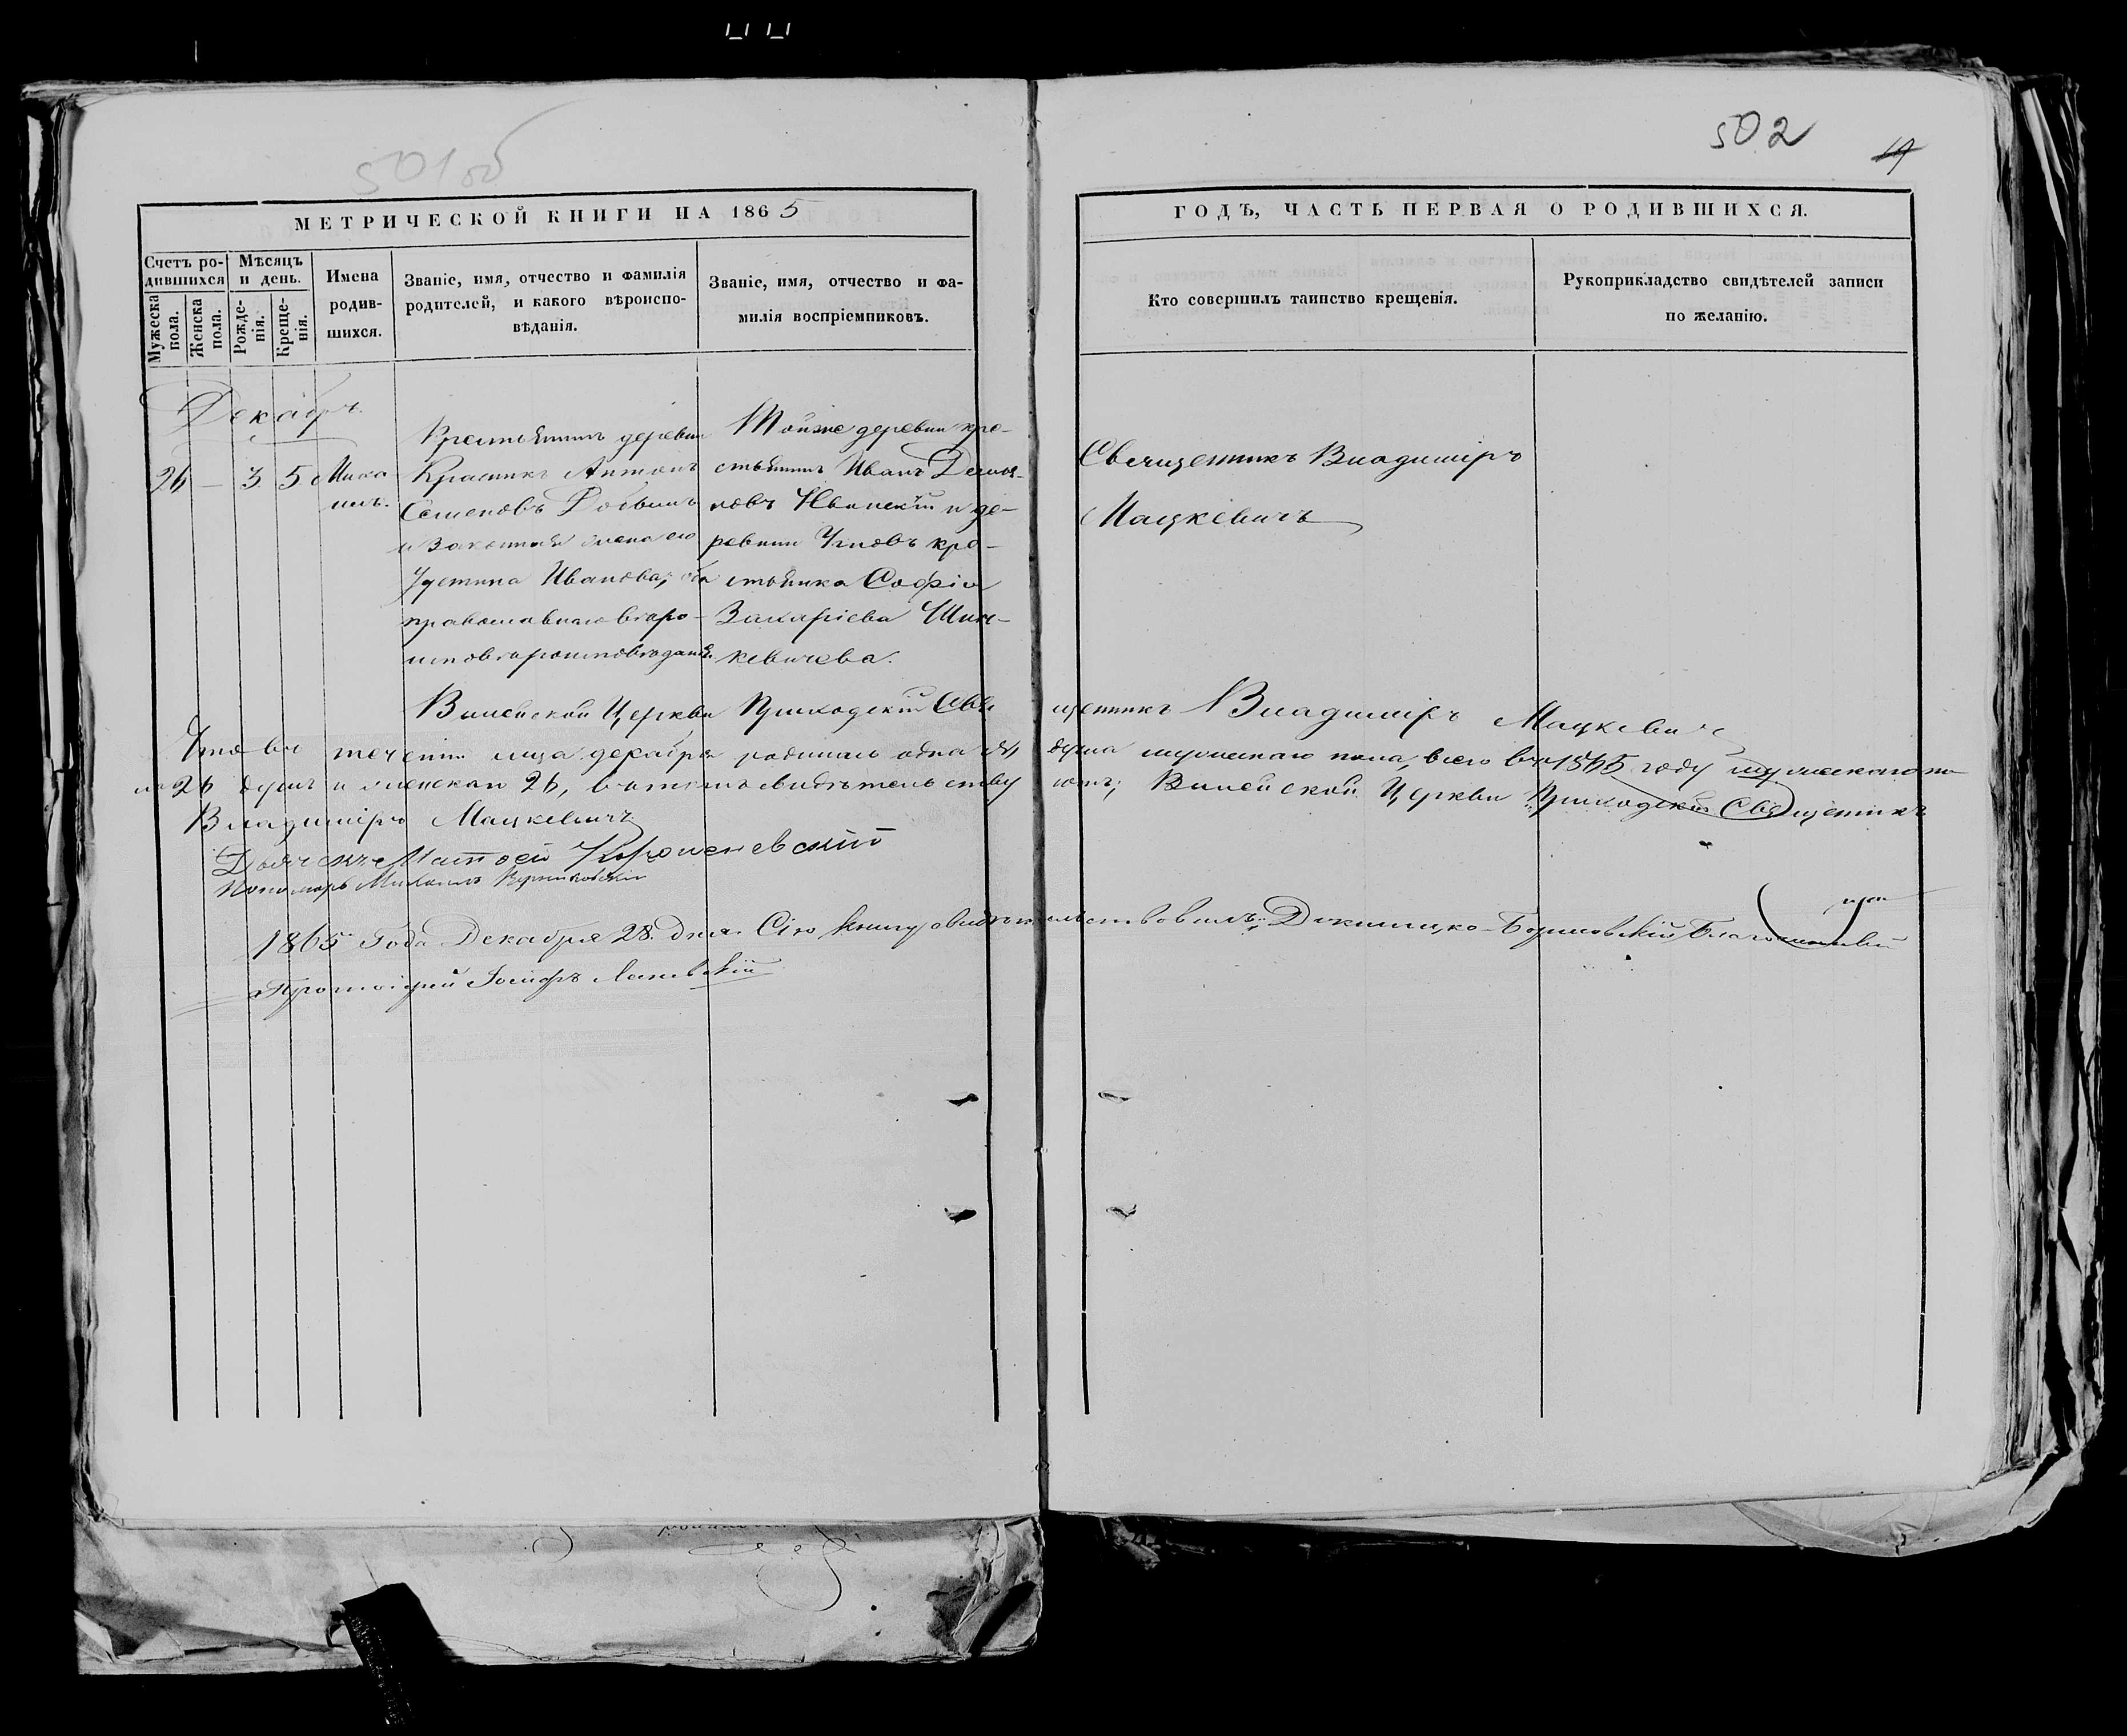 501 об
502
19
МЕТРИЧЕСКОЙ КНИГИ НА 1865
ГОДЪ, ЧАСТЬ ПЕРВАЯ О РОДИВШИХСЯ.
Счетъ ро-
дившихся
Мѣсяцъ
и день.
Мужеска
пола.
Женска
пола.
Рожде-
нія.
Креще-
нія.
Имена
родив-
шихся.
Званіе, имя, отчество и фамилія
родителей, и какого вѣроиспо-
вѣданія.
Званіе, имя, отчество и фа-
милія воспріемниковъ.
Кто совершилъ таинство крещенія.
Рукоприкладство свидѣтелей записи
по желанію.
Декабрь
26 — 3 5
Миха
илъ.
Крестьянинъ деревни
Антонъ
Семеновъ
и законная жена его
Устина Иванова, оба
православнаго
Тойже деревни кре-
стьянинъ Иванъ Демья-
новъ и де-
ревни кре-
стьянка Софія
Захаріева Шин-
кевичева.
Священникъ Владиміръ
Мацкевичъ
Церкви Приходскій Свя щенникъ Владиміръ Мацкевичъ
Что въ теченіи мца декабря родилась одна душа мужескаго пола, всего въ 1865 году мужескаго по
ла 26 душъ и женскаго 26, въ томъ свидѣтельству ютъ, Церкви Приходскій Священникъ
Владиміръ Мацкевичъ
Дьячекъ Матфей
Пономарь Михаилъ
1865 года Декабря 28. дня. Сію книгу свидѣтельствовалъ: Докшицко-Борисовскій Благочинный
Протоіерей Іосифъ